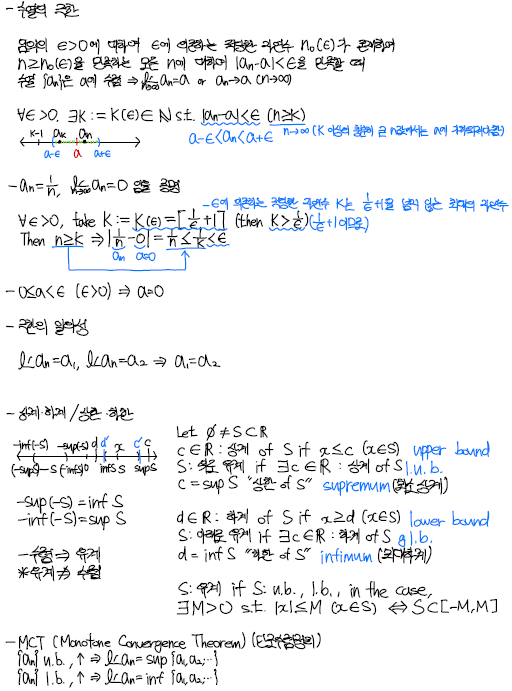 - 수열의 극한
임의의 ε>0에 대하여 ε에 의존하는 적당한 자연수 n₀(ε)가 존재하여
n≥n₀(ε)을 만족하는 모든 n에 대하여 |aₙ-a|<ε을 만족할 때
수열 {aₙ}은 a에 수렴 ⇒ lim aₙ=a or aₙ→a (n→∞)
n→∞
∀ε>0, ∃K:=K(ε)∈ℕ s.t. |aₙ-a|<ε (n≥K)
K-1 aₖ aₙ
a-ε a a+ε
a-ε<aₙ<a+ε
n→∞ (K 이상의 충분히 큰 n값에서는 a에 가까워진다)
- aₙ=1/n, lim aₙ=0 임을 증명
n→∞
- ε에 의존하는 적당한 자연수 K는 1/ε+1을 넘지 않는 최대의 자연수
∀ε>0, take K:=K(ε)=[1/ε+1] (then K>1/ε) (1/ε+1이므로)
Then n≥K ⇒ |1/n-0|=1/n≤1/K<ε
aₙ a=0
- 0≤a<ε (ε>0) ⇒ a=0
- 극한의 유일성
lim aₙ=a₁, lim aₙ=a₂ ⇒ a₁=a₂
- 상계·하계/상한·하한
-inf(-S) -sup(-S) d d x c c
(-sup S) -S (-inf S) 0 inf S S sup S
-sup(-S)=inf S
-inf(-S)=sup S
- 수렴 ⇒ 유계
*유계 ⇏ 수렴
Let ∅≠S⊂ℝ
c∈ℝ: 상계 of S if x≤c (x∈S) upper bound
S: 위로 유계 if ∃c∈ℝ: 상계 of S u.b.
c=sup S "상한 of S" supremum (최소상계)
d∈ℝ: 하계 of S if x≥d (x∈S) lower bound
S: 아래로 유계 if ∃c∈ℝ: 하계 of S l.b.
d=inf S "하한 of S" infimum (최대하계)
S: 유계 if S: u.b., l.b., in the case,
∃M>0 s.t. |x|≤M (x∈S) ⇔ S⊂[-M,M]
- MCT (Monotone Convergence Theorem) (단조수렴정리)
{aₙ} u.b., ↑ ⇒ lim aₙ=sup {a₁,a₂,…}
{aₙ} l.b., ↑ ⇒ lim aₙ=inf {a₁,a₂,…}